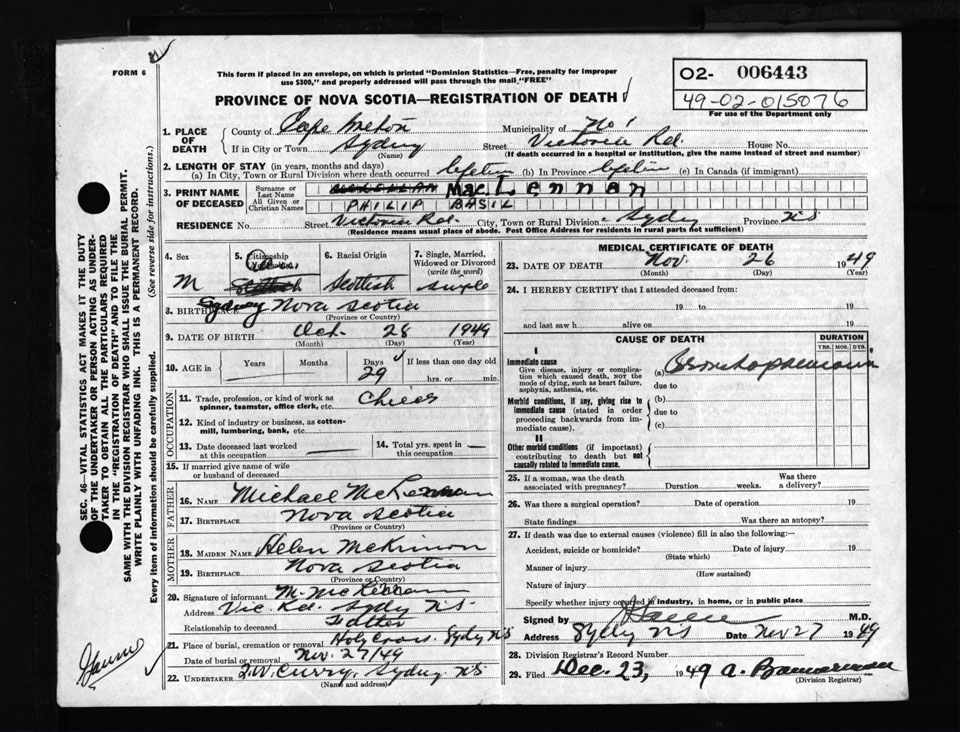 FORM 6
This form if placed in an envelope, on which is printed "Dominion Statistics—Free, penalty for improper
use $300," and properly addressed will pass through the mail "FREE"
PROVINCE OF NOVA SCOTIA—REGISTRATION OF DEATH
O2- 006443
49-02-015076
For use of the Department only
SEC. 46—VITAL STATISTICS ACT MAKES IT THE DUTY
OF THE UNDERTAKER OR PERSON ACTING AS UNDER-
TAKER TO OBTAIN ALL THE PARTICULARS REQUIRED
IN THE "REGISTRATION OF DEATH" AND TO FILE THE
SAME WITH THE DIVISION REGISTRAR WHO SHALL ISSUE THE BURIAL PERMIT.
WRITE PLAINLY WITH UNFADING INK. THIS IS A PERMANENT RECORD.
Every item of information should be carefully supplied. (See reverse side for instructions.)
1. PLACE OF DEATH
County of Cape Breton Municipality of
If in City or Town Sydney Street Victoria Rd. House No.
(Name) (If death occurred in a hospital or institution, give the name instead of street and number)
2. LENGTH OF STAY (in years, months and days)
(a) In City, Town or Rural Division where death occurred lifetime (b) In Province lifetime (c) In Canada (if immigrant)
3. PRINT NAME OF DECEASED
Surname or Last Name MacLennan
All Given or Christian Names PHILIP BASIL
RESIDENCE No. Street Victoria Rd. City, Town or Rural Division Sydy Province NS
(Residence means usual place of abode. Post Office Address for residents in rural parts not sufficient)
4. Sex M
5. Citizenship Scottish
6. Racial Origin Scottish
7. Single, Married, Widowed or Divorced (write the word) single
8. BIRTHPLACE Sydney Nova Scotia
(Province or Country)
9. DATE OF BIRTH Oct. 28 1949
(Month) (Day) (Year)
10. AGE in Years Months Days 29 If less than one day old
hrs. or min.
OCCUPATION
11. Trade, profession, or kind of work as
spinner, teamster, office clerk, etc. Child
12. Kind of industry or business, as cotton-
mill, lumbering, bank, etc.
13. Date deceased last worked at this occupation
14. Total yrs. spent in this occupation
15. If married give name of wife
or husband of deceased
FATHER
16. NAME Michael
17. BIRTHPLACE Nova Scotia
(Province or Country)
MOTHER
18. MAIDEN NAME Helen McKinnon
19. BIRTHPLACE Nova Scotia
(Province or Country)
20. Signature of informant M.
Address Vic Rd. Sydy NS
Relationship to deceased Father
21. Place of burial, cremation or removal Holy Cross. Sydy NS
Date of burial or removal Nov. 27/49
22. UNDERTAKER T.W. Curry, Sydney NS
(Name and address)
MEDICAL CERTIFICATE OF DEATH
23. DATE OF DEATH Nov. 26 1949
(Month) (Day) (Year)
24. I HEREBY CERTIFY that I attended deceased from:
19 to 19
and last saw h alive on 19
CAUSE OF DEATH
DURATION
YRS. MOS. DYS.
I
Immediate cause
Give disease, injury or complica-
tion which caused death, NOT the
mode of dying, such as heart failure,
asphyxia, asthenia, etc.
(a) Bronchopneumonia
due to
Morbid conditions, if any, giving rise to
immediate cause (stated in order
proceeding backwards from im-
mediate cause).
(b)
due to
(c)
II
Other morbid conditions (if important)
contributing to death but not
causally related to immediate cause.
25. If a woman, was the death
associated with pregnancy? Duration weeks. Was there a delivery?
26. Was there a surgical operation? Date of operation 19
State findings Was there an autopsy?
27. If death was due to external causes (violence) fill in also the following:—
Accident, suicide or homicide? Date of injury 19
(State which)
Manner of injury
(How sustained)
Nature of injury
Specify whether injury occurred in industry, in home, or in public place
Signed by M.D.
Address Sydy NS Date Nov 27 1949
28. Division Registrar's Record Number
29. Filed Dec. 23, 1949 A.
(Division Registrar)